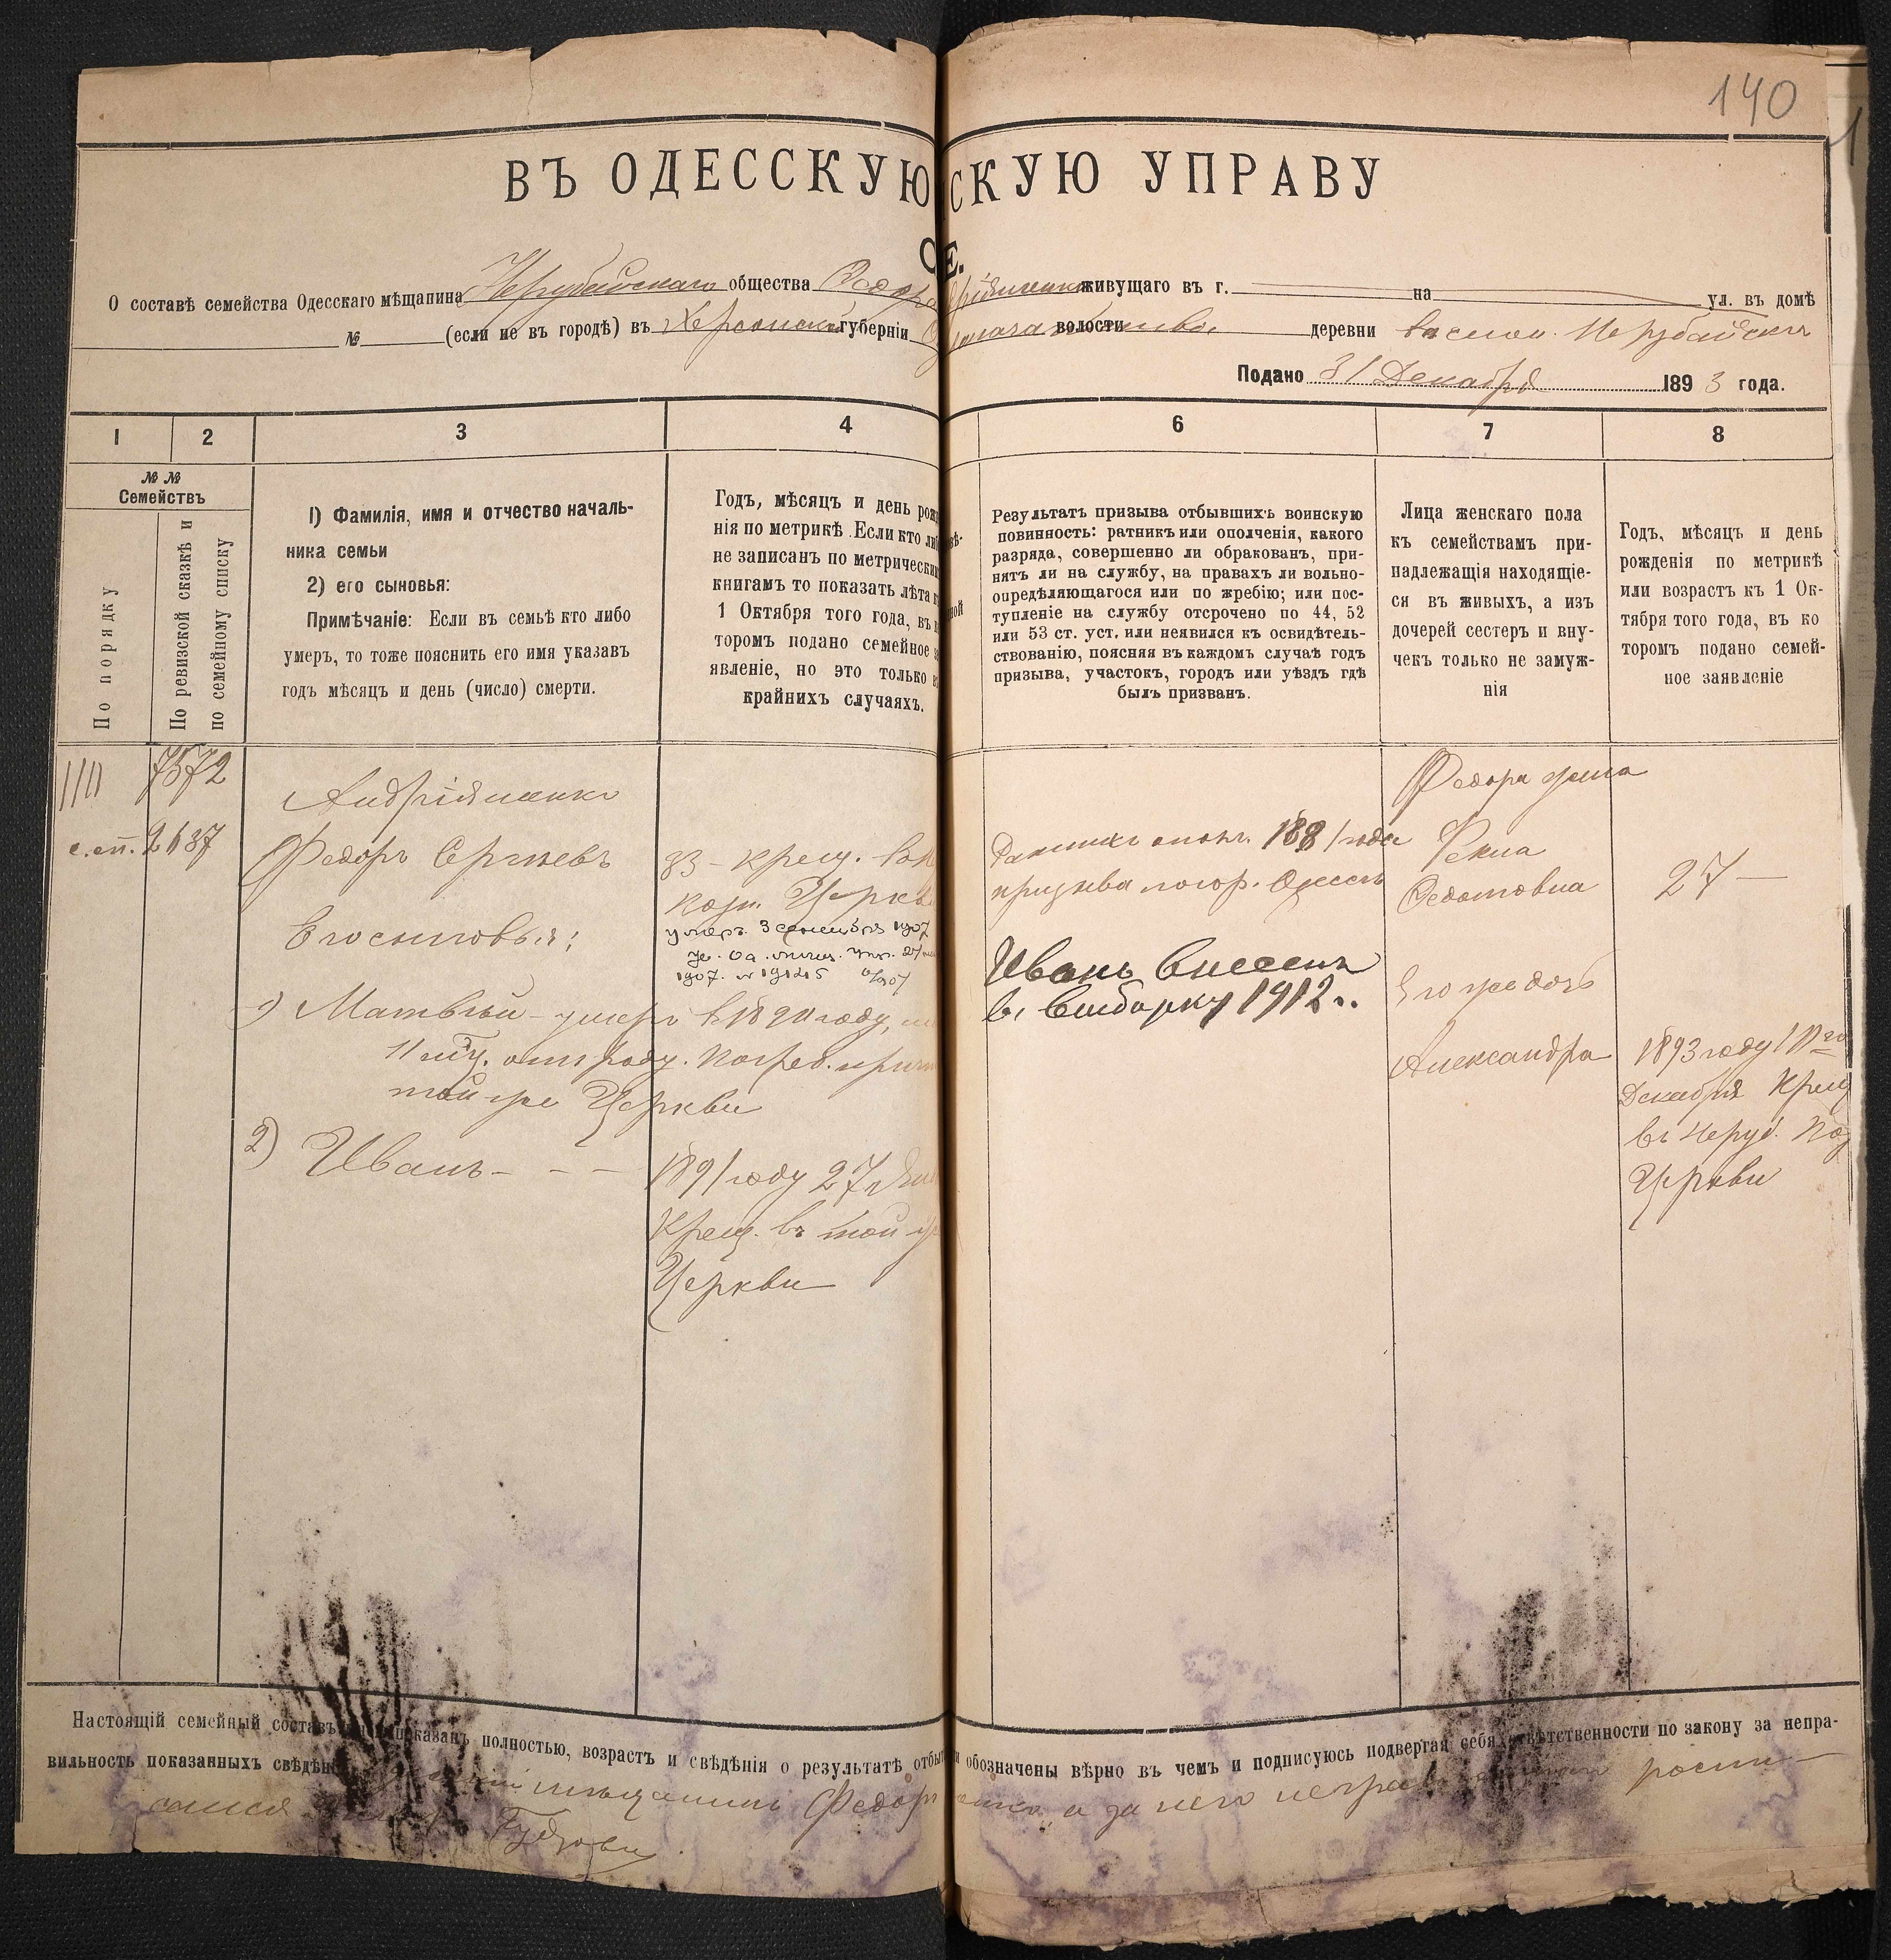 140
ВЪ ОДЕССКУЮ СКУЮ УПРАВУ
О Е.
О составѣ семейства Одесскаго мѣщанина Нерубайскаго общества Ѳедора живущаго въ г. на ул. въ домѣ
№ (если не въ городѣ) въ Херсонской губерніи волости деревни Нерубайскъ
Подано 31 Декабря 1893 года.
1 2 3 4 6 7 8
№ №
Семействъ
По порядку
По ревизской сказкѣ и
по семейному списку
1) Фамилія, имя и отчество началь-
ника семьи
2) его сыновья:
Примѣчаніе: Если въ семьѣ кто либо
умеръ, то тоже пояснить его имя указавъ
годъ мѣсяцъ и день (число) смерти.
Годъ, мѣсяцъ и день рож
нія по метрикѣ. Если кто ли
не записанъ по метрически
книгамъ то показать лѣта к
1 Октября того года, въ к
торомъ подано семейное з
явленіе, но это только в
крайнихъ случаяхъ.
Результатъ призыва отбывшихъ воинскую
повинность: ратникъ или ополченія, какого
разряда, совершенно ли обракованъ, при-
нятъ ли на службу, на правахъ ли вольно-
опредѣляющагося или по жребію; или пос-
тупленіе на службу отсрочено по 44, 52
или 53 ст. уст. или неявился къ освидѣтель-
ствованію, поясняя въ каждомъ случаѣ годъ
призыва, участокъ, городъ или уѣздъ гдѣ
былъ призванъ.
Лица женскаго пола
къ семействамъ при-
надлежащія находящіе-
ся въ живыхъ, а изъ
дочерей сестеръ и вну-
чекъ только не замуж-
нія
Годъ, мѣсяцъ и день
рожденія по метрикѣ
или возрастъ къ 1 Ок-
тября того года, въ ко
торомъ подано семей-
ное заявленіе
7572
с.сп. 2637
Андріяненко
Федоръ Сергѣевъ
Его сыновья:
1) Матвѣй – умеръ въ 1890 году,
11 мѣц. отъ роду. Погреб. при
той же Церкви
2) Иванъ - - -
33 – крещ. въ
каз. Церкв
умеръ 3 сентября 1907
1907. № 19125
1891 году 27
Крещ. въ той же
Церкви
Ратникъ ополч. 1881 года
призыва по гор. Одессѣ
Иванъ внесенъ
въ выборку 1912 г.
Федора жена
Фекла
Федотовна
27 —
Его же дочь
Александра
1893 году
Декабря Крещ
въ Неруб. Каз
Церкви
Настоящій семейный составъ показанъ полностью, возрастъ и свѣдѣнія о результатѣ отбыт и обозначены вѣрно въ чемъ и подписуюсь подвергая себя отвѣтственности по закону за непра-
вильность показанныхъ свѣдѣн
мѣщанинъ Федоръ а за него неграмотнаго роспи-
сался